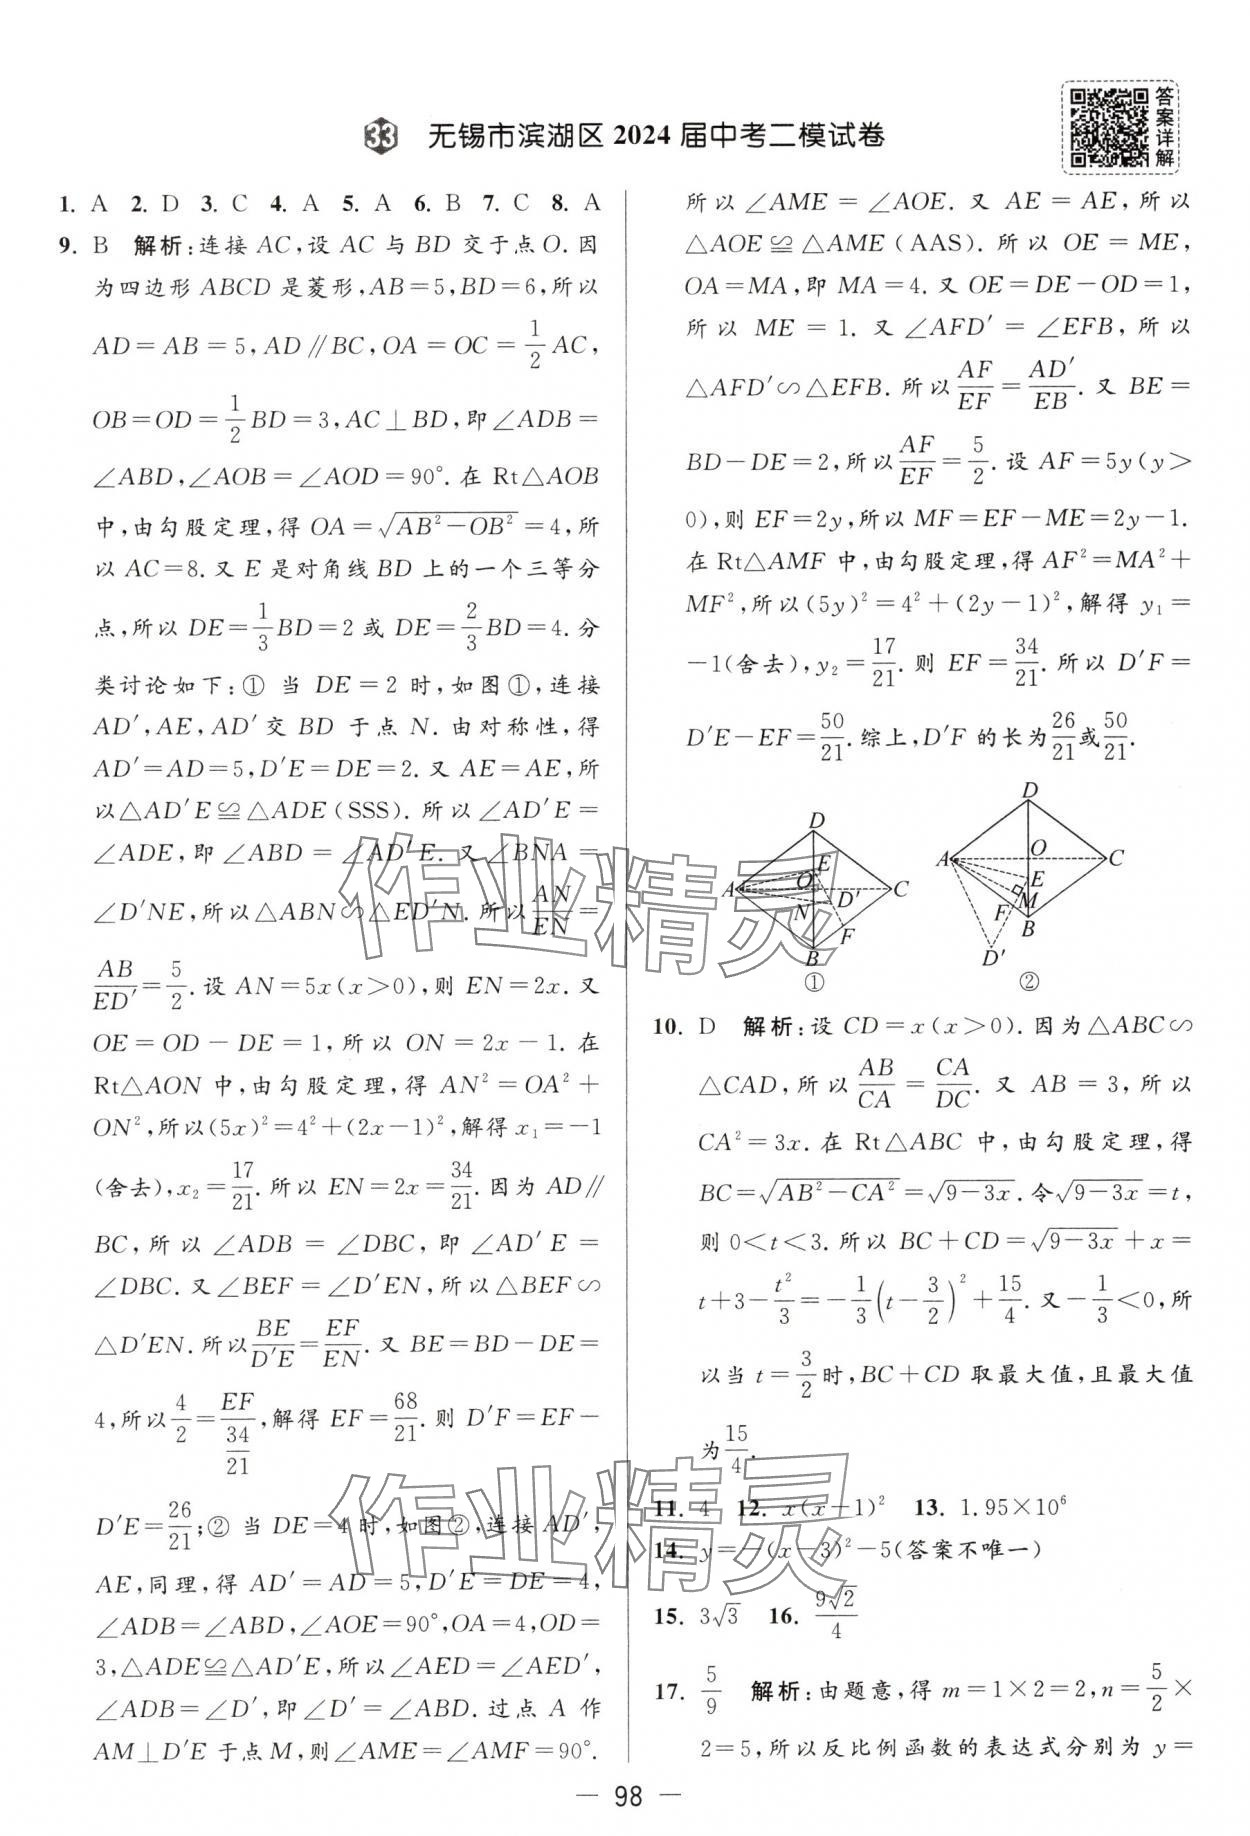 33 无锡市滨湖区 2024 届中考二模试卷
答案详解
1. A 2. D 3. C 4. A 5. A 6. B 7. C 8. A
9. B 解析:连接 AC,设 AC 与 BD 交于点 O. 因
为四边形 ABCD 是菱形,AB=5,BD=6,所以
AD=AB=5,AD∥BC,OA=OC=1/2 AC,
OB=OD=1/2 BD=3,AC⊥BD,即∠ADB=
∠ABD,∠AOB=∠AOD=90°. 在 Rt△AOB
中,由勾股定理,得 OA=√(AB²-OB²)=4,所
以 AC=8. 又 E 是对角线 BD 上的一个三等分
点,所以 DE=1/3 BD=2 或 DE=2/3 BD=4. 分
类讨论如下:① 当 DE=2 时,如图①,连接
AD′,AE,AD′交 BD 于点 N. 由对称性,得
AD′=AD=5,D′E=DE=2. 又 AE=AE,所
以△AD′E≌△ADE(SSS). 所以∠AD′E=
∠ADE,即∠ABD=∠AD′E. 又∠BNA=
∠D′NE,所以△ABN∽△ED′N. 所以 AN/EN=
AB/ED′=5/2. 设 AN=5x(x>0),则 EN=2x. 又
OE=OD-DE=1,所以 ON=2x-1. 在
Rt△AON 中,由勾股定理,得 AN²=OA²+
ON²,所以(5x)²=4²+(2x-1)²,解得 x₁=-1
(舍去),x₂=17/21. 所以 EN=2x=34/21. 因为 AD∥
BC,所以∠ADB=∠DBC,即∠AD′E=
∠DBC. 又∠BEF=∠D′EN,所以△BEF∽
△D′EN. 所以 BE/D′E=EF/EN. 又 BE=BD-DE=
4,所以 4/2=EF/(34/21),解得 EF=68/21. 则 D′F=EF-
D′E=26/21;② 当 DE=4 时,如图②,连接 AD′,
AE,同理,得 AD′=AD=5,D′E=DE=4,
∠ADB=∠ABD,∠AOE=90°,OA=4,OD=
3,△ADE≌△AD′E,所以∠AED=∠AED′,
∠ADB=∠D′,即∠D′=∠ABD. 过点 A 作
AM⊥D′E 于点 M,则∠AME=∠AMF=90°.
所以∠AME=∠AOE. 又 AE=AE,所以
△AOE≌△AME(AAS). 所以 OE=ME,
OA=MA,即 MA=4. 又 OE=DE-OD=1,
所以 ME=1. 又∠AFD′=∠EFB,所以
△AFD′∽△EFB. 所以 AF/EF=AD′/EB. 又 BE=
BD-DE=2,所以 AF/EF=5/2. 设 AF=5y(y>
0),则 EF=2y,所以 MF=EF-ME=2y-1.
在 Rt△AMF 中,由勾股定理,得 AF²=MA²+
MF²,所以(5y)²=4²+(2y-1)²,解得 y₁=
-1(舍去),y₂=17/21. 则 EF=34/21. 所以 D′F=
D′E-EF=50/21. 综上,D′F 的长为 26/21 或 50/21.
D
E
A
O
C
N
D′
F
B
①
D
A
O
C
E
F
M
B
D′
②
10. D 解析:设 CD=x(x>0). 因为△ABC∽
△CAD,所以 AB/CA=CA/DC. 又 AB=3,所以
CA²=3x. 在 Rt△ABC 中,由勾股定理,得
BC=√(AB²-CA²)=√(9-3x). 令√(9-3x)=t,
则 0<t<3. 所以 BC+CD=√(9-3x)+x=
t+3-t²/3=-1/3(t-3/2)²+15/4. 又-1/3<0,所
以当 t=3/2 时,BC+CD 取最大值,且最大值
为 15/4.
11. 4 12. x(x-1)² 13. 1.95×10⁶
14. y=-(x-3)²-5(答案不唯一)
15. 3√3 16. 9√2/4
17. 5/9 解析:由题意,得 m=1×2=2,n=5/2×
2=5,所以反比例函数的表达式分别为 y=
作业精灵
作业精灵
— 98 —